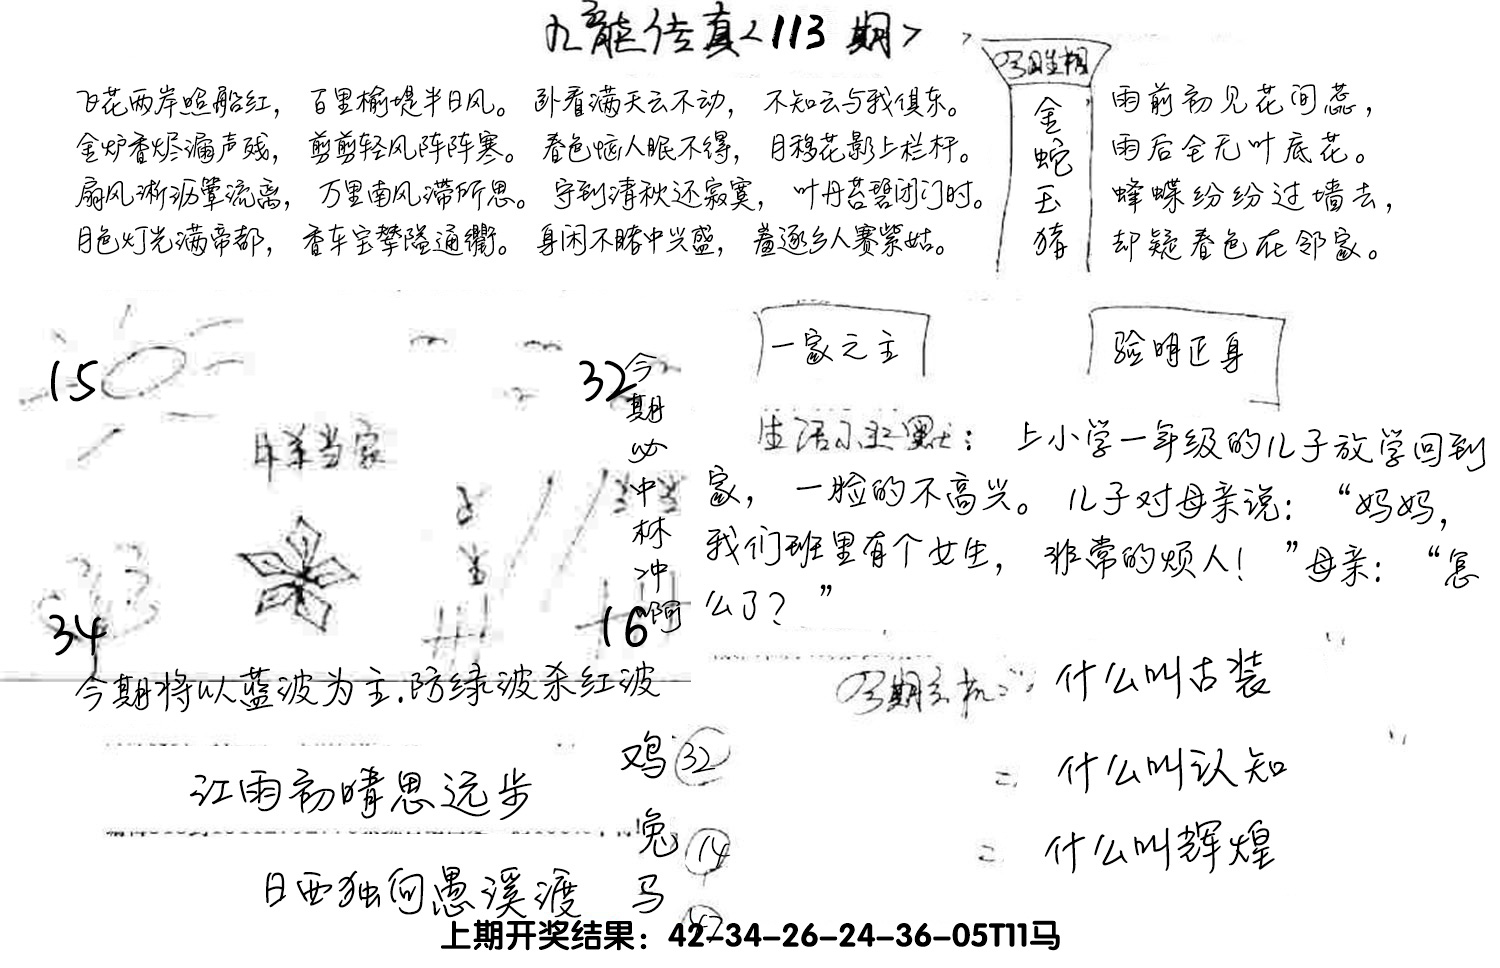 九龙传真<113期>
飞花两岸照船红，百里榆堤半日风。卧看满天云不动，不知云与我俱东。
金炉香烬漏声残，剪剪轻风阵阵寒。春色恼人眠不得，月移花影上栏杆。
扇风淅沥簟流离，万里南风滞所思。守到清秋还寂寞，叶丹苔碧闭门时。
月色灯光满帝都，香车宝辇隘通衢。身闲不睹中兴盛，羞逐乡人赛紫姑。
今期生相
金蛇玉猪
雨前初见花间蕊，
雨后全无叶底花。
蜂蝶纷纷过墙去，
却疑春色在邻家。
一家之主
验明正身
15
32
今期必中林冲啊
当家
34
16
今期将以蓝波为主.防绿波杀红波
生活小幽默：上小学一年级的儿子放学回到
家，一脸的不高兴。儿子对母亲说：“妈妈，
我们班里有个女生，非常的烦人！”母亲：“怎
么了？”
今期玄机：什么叫古装
什么叫认知
什么叫辉煌
江雨初晴思远步
日西独向愚溪渡
鸡 32
兔 14
马
上期开奖结果：42-34-26-24-36-05T11马